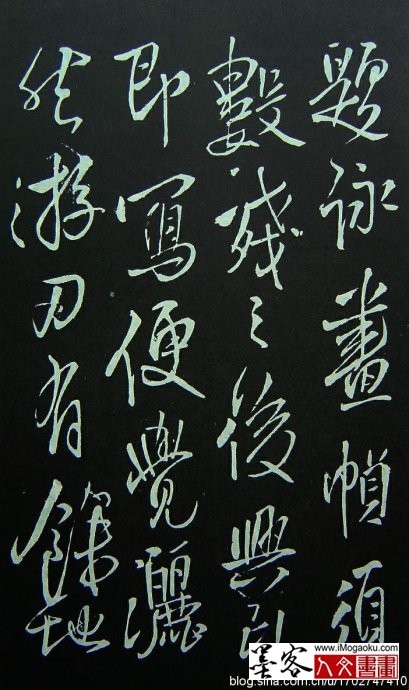 題詠畫幀須
數琖之後興到
即寫便覺灑
然游刃有餘地
墨客
www.iMogaoku.com
人文書畫
blog.sina.com.cn/u/1702747410